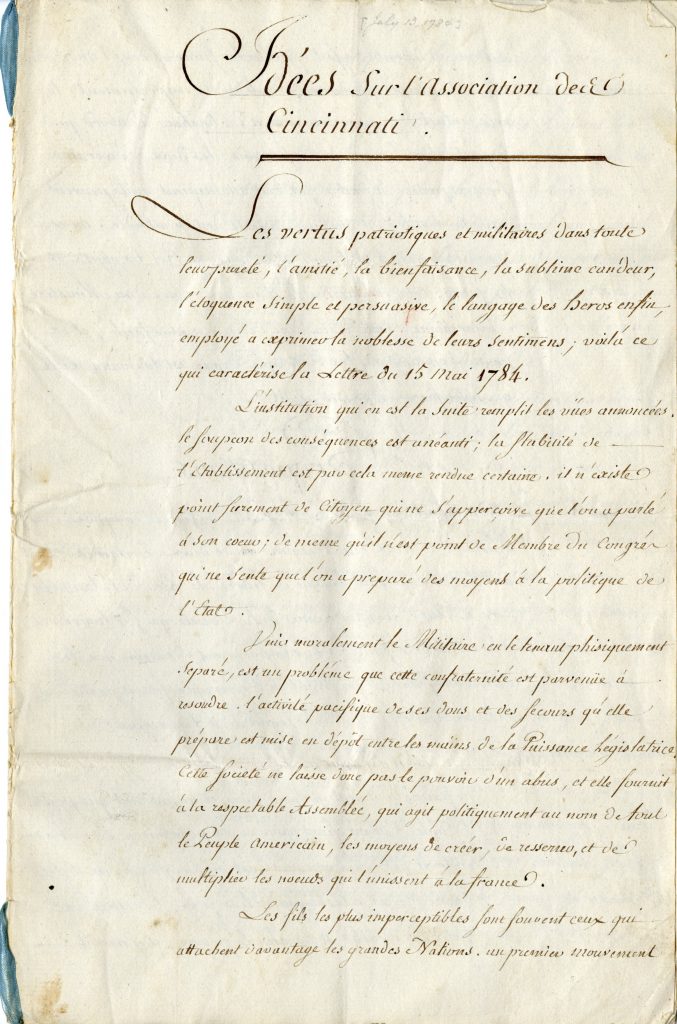 [July 13, 1784]
Idées Sur l'Association de
Cincinnati.
Les vertus patriotiques et militaires dans toute
leur pureté, l'amitié, la bienfaisance, la sublime candeur,
l'éloquence simple et persuasive, le langage des heros enfin,
employé a exprimer la noblesse de leurs sentimens; voilà ce
qui caractérise la Lettre du 15 Mai 1784.
L'institution qui en est la suite remplit les vües annoncées.
le soupçon des conséquences est anéanti; la stabilité de
l'Etablissement est par cela meme rendue certaine. il n'existe
point surement de Citoyen qui ne s'apperçoive que l'on a parlé
à son coeur; de meme qu'il n'est point de Membre du Congrés
qui ne sente que l'on a preparé des moyens à la politique de
l'Etat.
Unir moralement le Militaire en le tenant phisiquement
separé, est un probléme que cette confraternité est parvenüe à
resoudre. l'activité pacifique de ses dons et des secours qu'elle
prépare est mise en dépôt entre les mains de la Puissance Législatrice.
Cette société ne laisse donc pas le pouvoir d'un abus, et elle fournit
à la respectable Assemblée, qui agit politiquement au nom de tout
le Peuple americain, les moyens de créer, de resserrer, et de
multiplier les noeuds qui l'unissent à la france.
Les fils les plus imperceptibles sont souvent ceux qui
attachent davantage les grandes Nations. un premier mouvement